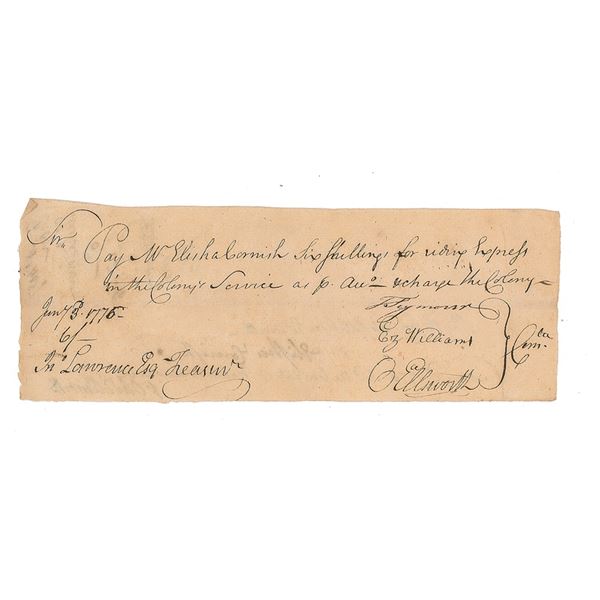 Sir,, Pay Mr Elisha Cornish Six Shillings for riding Express
in the Colony's Service as p. Acco & charge the Colony =
1776
6/–
T Seymour
Ez Williams
O Ellsworth
Comtee
Jno Lawrence Esq Treasurr